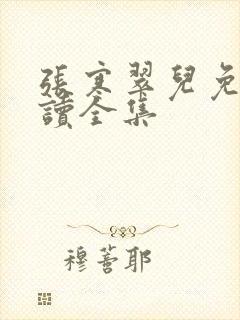 張寒翠兒免
讀全集
穆薈耶